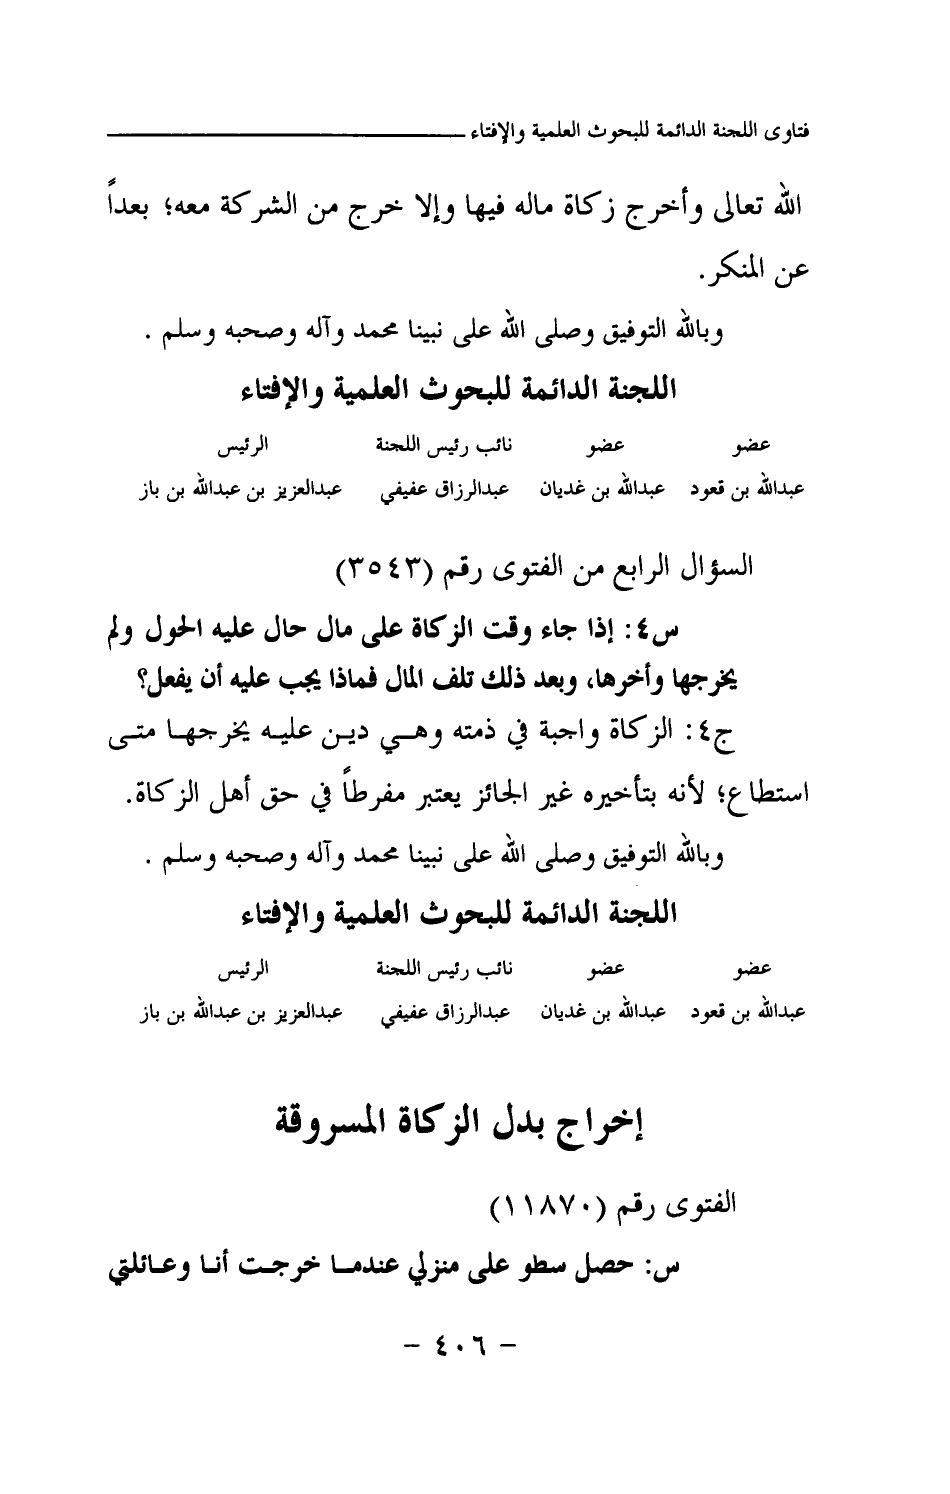 فتاوى اللجنة الدائمة للبحوث العلمية والإفتاء
الله تعالى وأخرج زكاة ماله فيها وإلا خرج من الشركة معه؛ بعداً
عن المنكر.
وبالله التوفيق وصلى الله على نبينا محمد وآله وصحبه وسلم .
اللجنة الدائمة للبحوث العلمية والإفتاء
عضو عضو نائب رئيس اللجنة الرئيس
عبدالله بن قعود عبدالله بن غديان عبدالرزاق عفيفي عبدالعزيز بن عبدالله بن باز
السؤال الرابع من الفتوى رقم (٣٥٤٣)
س٤: إذا جاء وقت الزكاة على مال حال عليه الحول ولم
يخرجها وأخرها، وبعد ذلك تلف المال فماذا يجب عليه أن يفعل؟
ج٤: الزكاة واجبة في ذمته وهي دين عليه يخرجها متى
استطاع؛ لأنه بتأخيره غير الجائز يعتبر مفرطاً في حق أهل الزكاة.
وبالله التوفيق وصلى الله على نبينا محمد وآله وصحبه وسلم .
اللجنة الدائمة للبحوث العلمية والإفتاء
عضو عضو نائب رئيس اللجنة الرئيس
عبدالله بن قعود عبدالله بن غديان عبدالرزاق عفيفي عبدالعزيز بن عبدالله بن باز
إخراج بدل الزكاة المسروقة
الفتوى رقم (١١٨٧٠)
س: حصل سطو على منزلي عندما خرجت أنا وعائلتي
- ٤٠٦ -